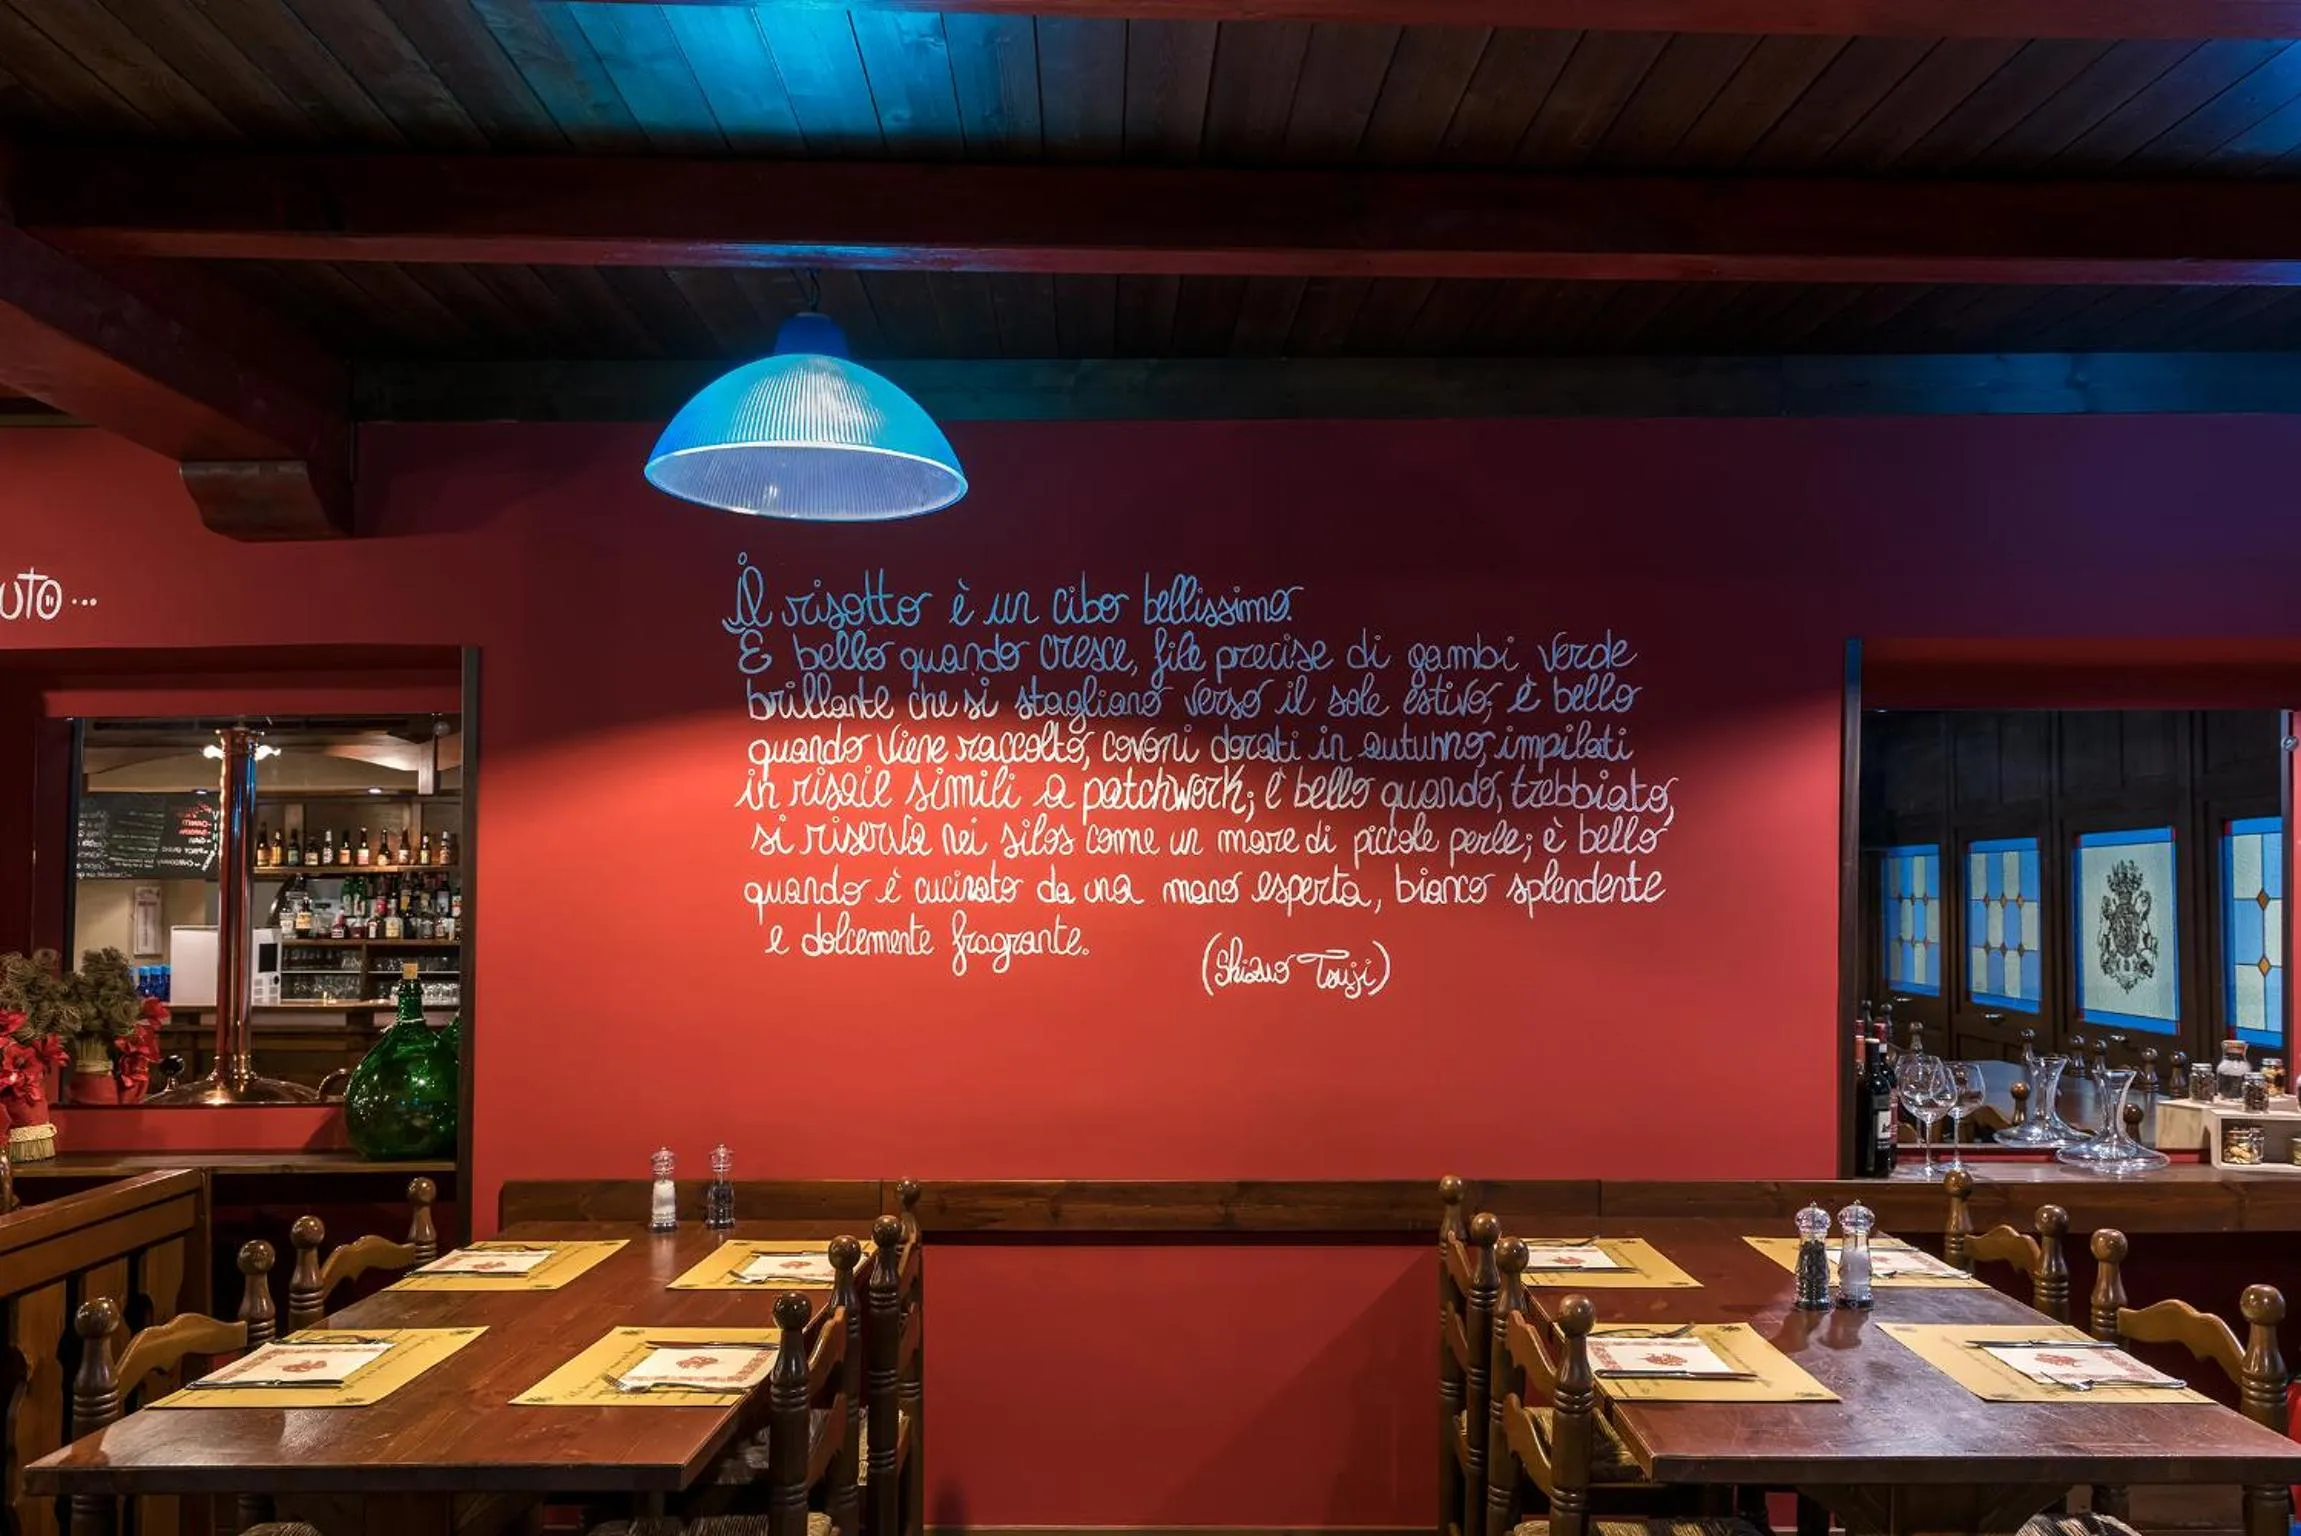 UTO...
Il risotto è un cibo bellissimo.
È bello quando cresce, file precise di gambi verde
brillante che si stagliano verso il sole estivo; è bello
quando viene raccolto, covoni dorati in autunno, impilati
in risaie simili a patchwork; è bello quando, trebbiato,
si riserva nei silos come un mare di piccole perle; è bello
quando è cucinato da una mano esperta, bianco splendente
e dolcemente fragrante.
(Shizuo Tsuji)